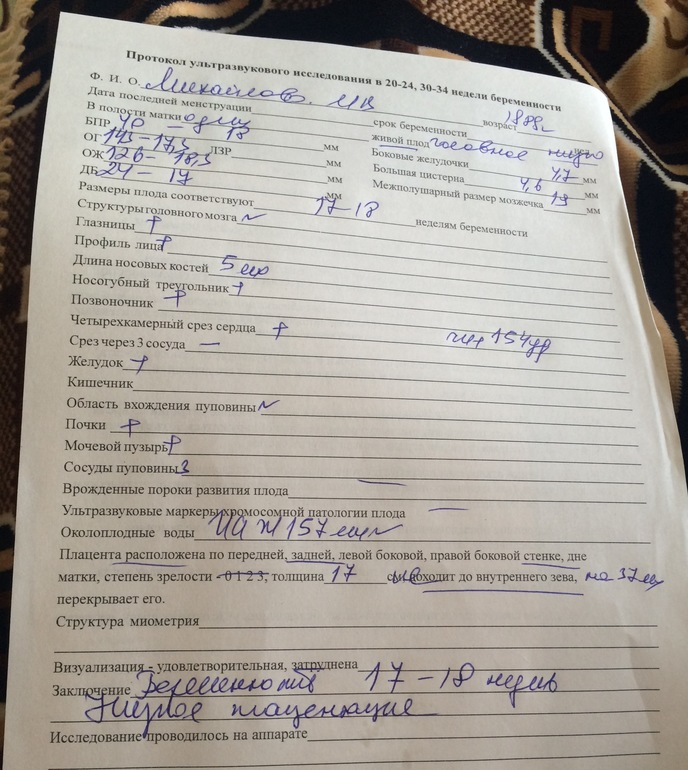 Протокол ультразвукового исследования в 20-24, 30-34 недели беременности
Ф. И. О. возраст 1988г
Дата последней менструации срок беременности нед.
В полости матки один живой плод головное
БПР 40 – 18 Боковые желудочки 4,7 мм
ОГ 143 – 17,5 ЛЗР мм Большая цистерна 4,6 мм
ОЖ 126 – 18,5 мм Межполушарный размер мозжечка 19 мм
ДБ 24 – 17 мм
Размеры плода соответствуют 17–18 неделям беременности
Структуры головного мозга N
Глазницы +
Профиль лица +
Длина носовых костей 5 мм
Носогубный треугольник +
Позвоночник +
Четырехкамерный срез сердца + 154 уд
Срез через 3 сосуда —
Желудок +
Кишечник
Область вхождения пуповины N
Почки +
Мочевой пузырь +
Сосуды пуповины 3
Врожденные пороки развития плода —
Ультразвуковые маркеры хромосомной патологии плода —
Околоплодные воды ИАЖ 157 мм N
Плацента расположена по передней, задней, левой боковой, правой боковой стенке, дне
матки, степень зрелости 0 1 2 3, толщина 17 доходит до внутреннего зева, на 37 мм
перекрывает его.
Структура миометрия
Визуализация - удовлетворительная, затруднена
Заключение Беременность 17–18 недель
Низкое плацентация
Исследование проводилось на аппарате